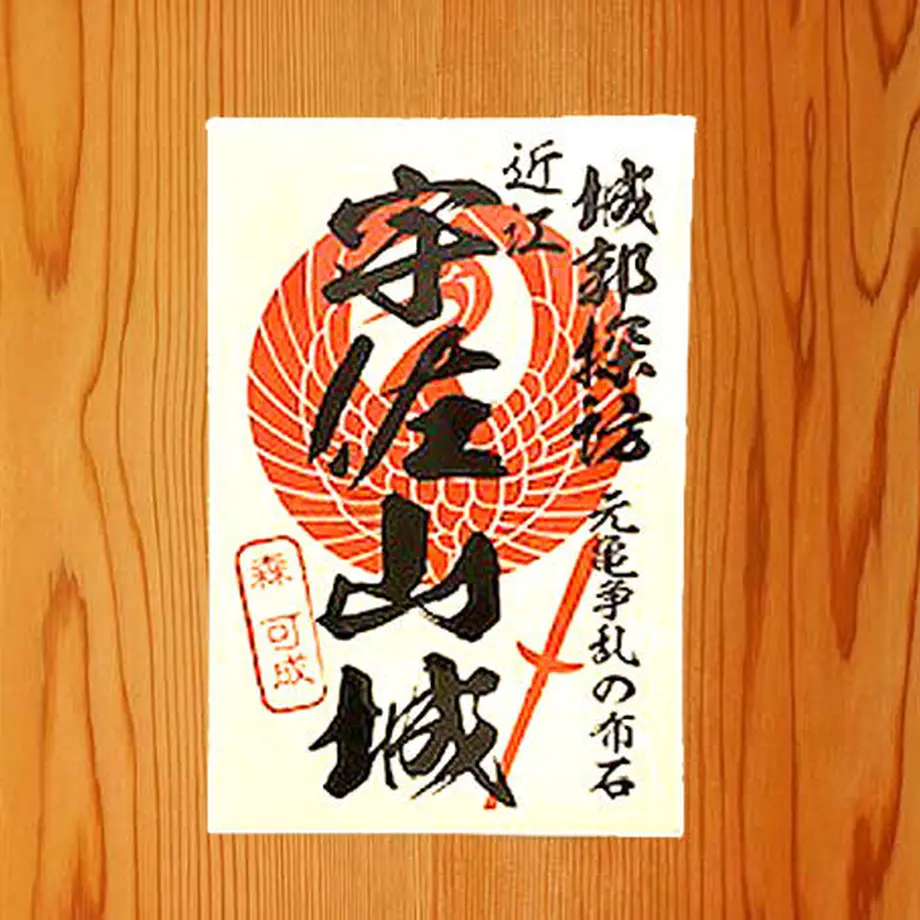 城郭探訪
元亀争乱の布石
近江
宇佐山城
森 可成